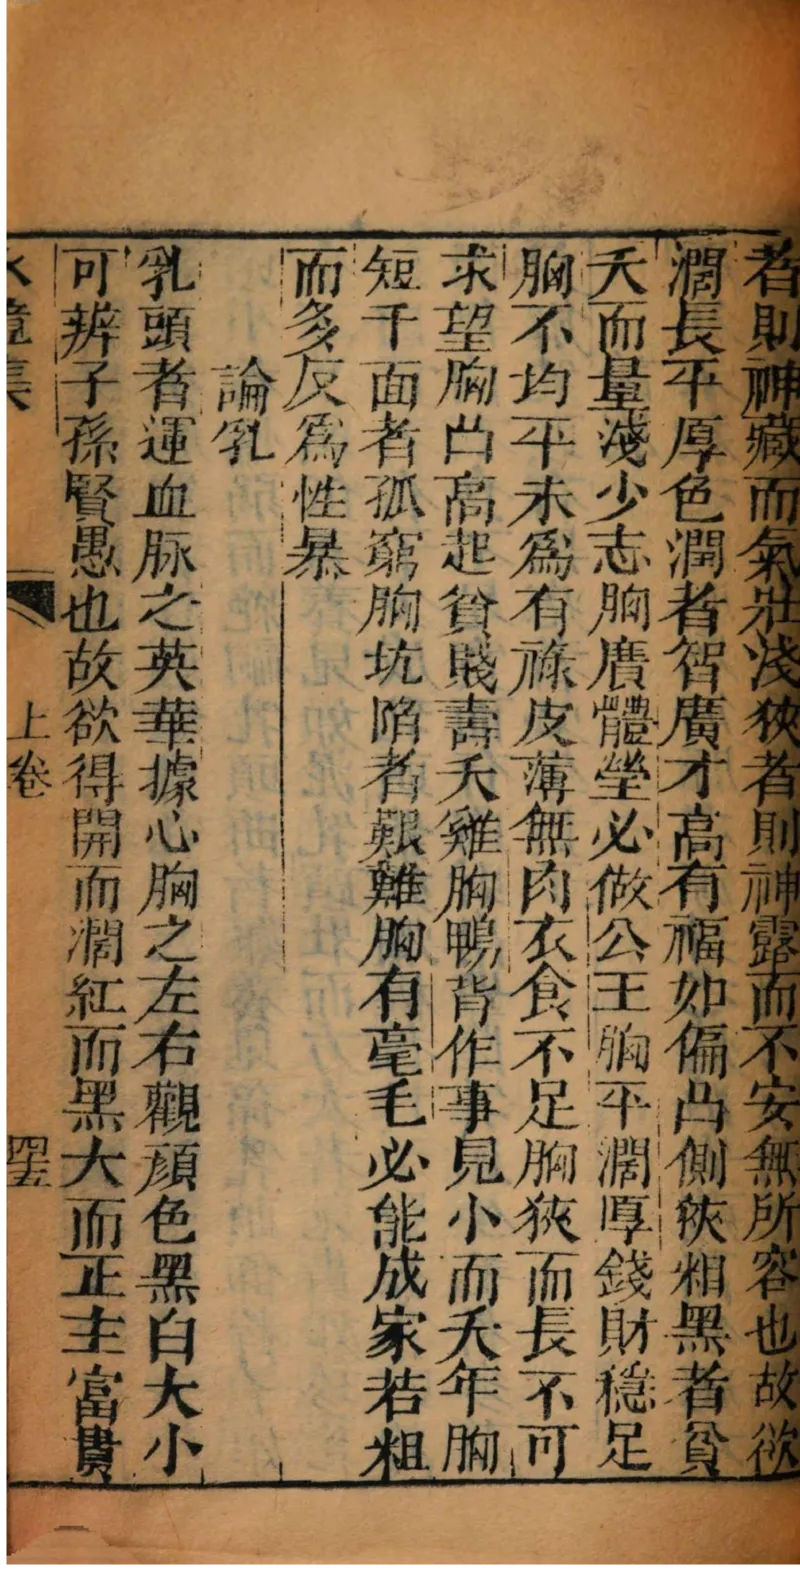 者則神藏而氣壯淺狹者則神露而不安無所容也故欲
濶長平厚色潤者智廣才高有福如偏凸側狹粗黑者貧
夭而量淺少志胸廣體瑩必做公王胸平濶厚錢財穩足
胸不均平未爲有祿皮薄無肉衣食不足胸狹而長不可
求望胸凸高起貧賤壽夭雞胸鴨背作事見小而夭年胸
短千面者孤窮胸坑陷者艱難胸有毫毛必能成家若粗
而多反爲性暴
論乳
乳頭者運血脉之英華據心胸之左右觀顔色黑白大小
可辨子孫賢愚也故欲得開而濶紅而黑大而正主富貴
水鏡集
上卷
四五